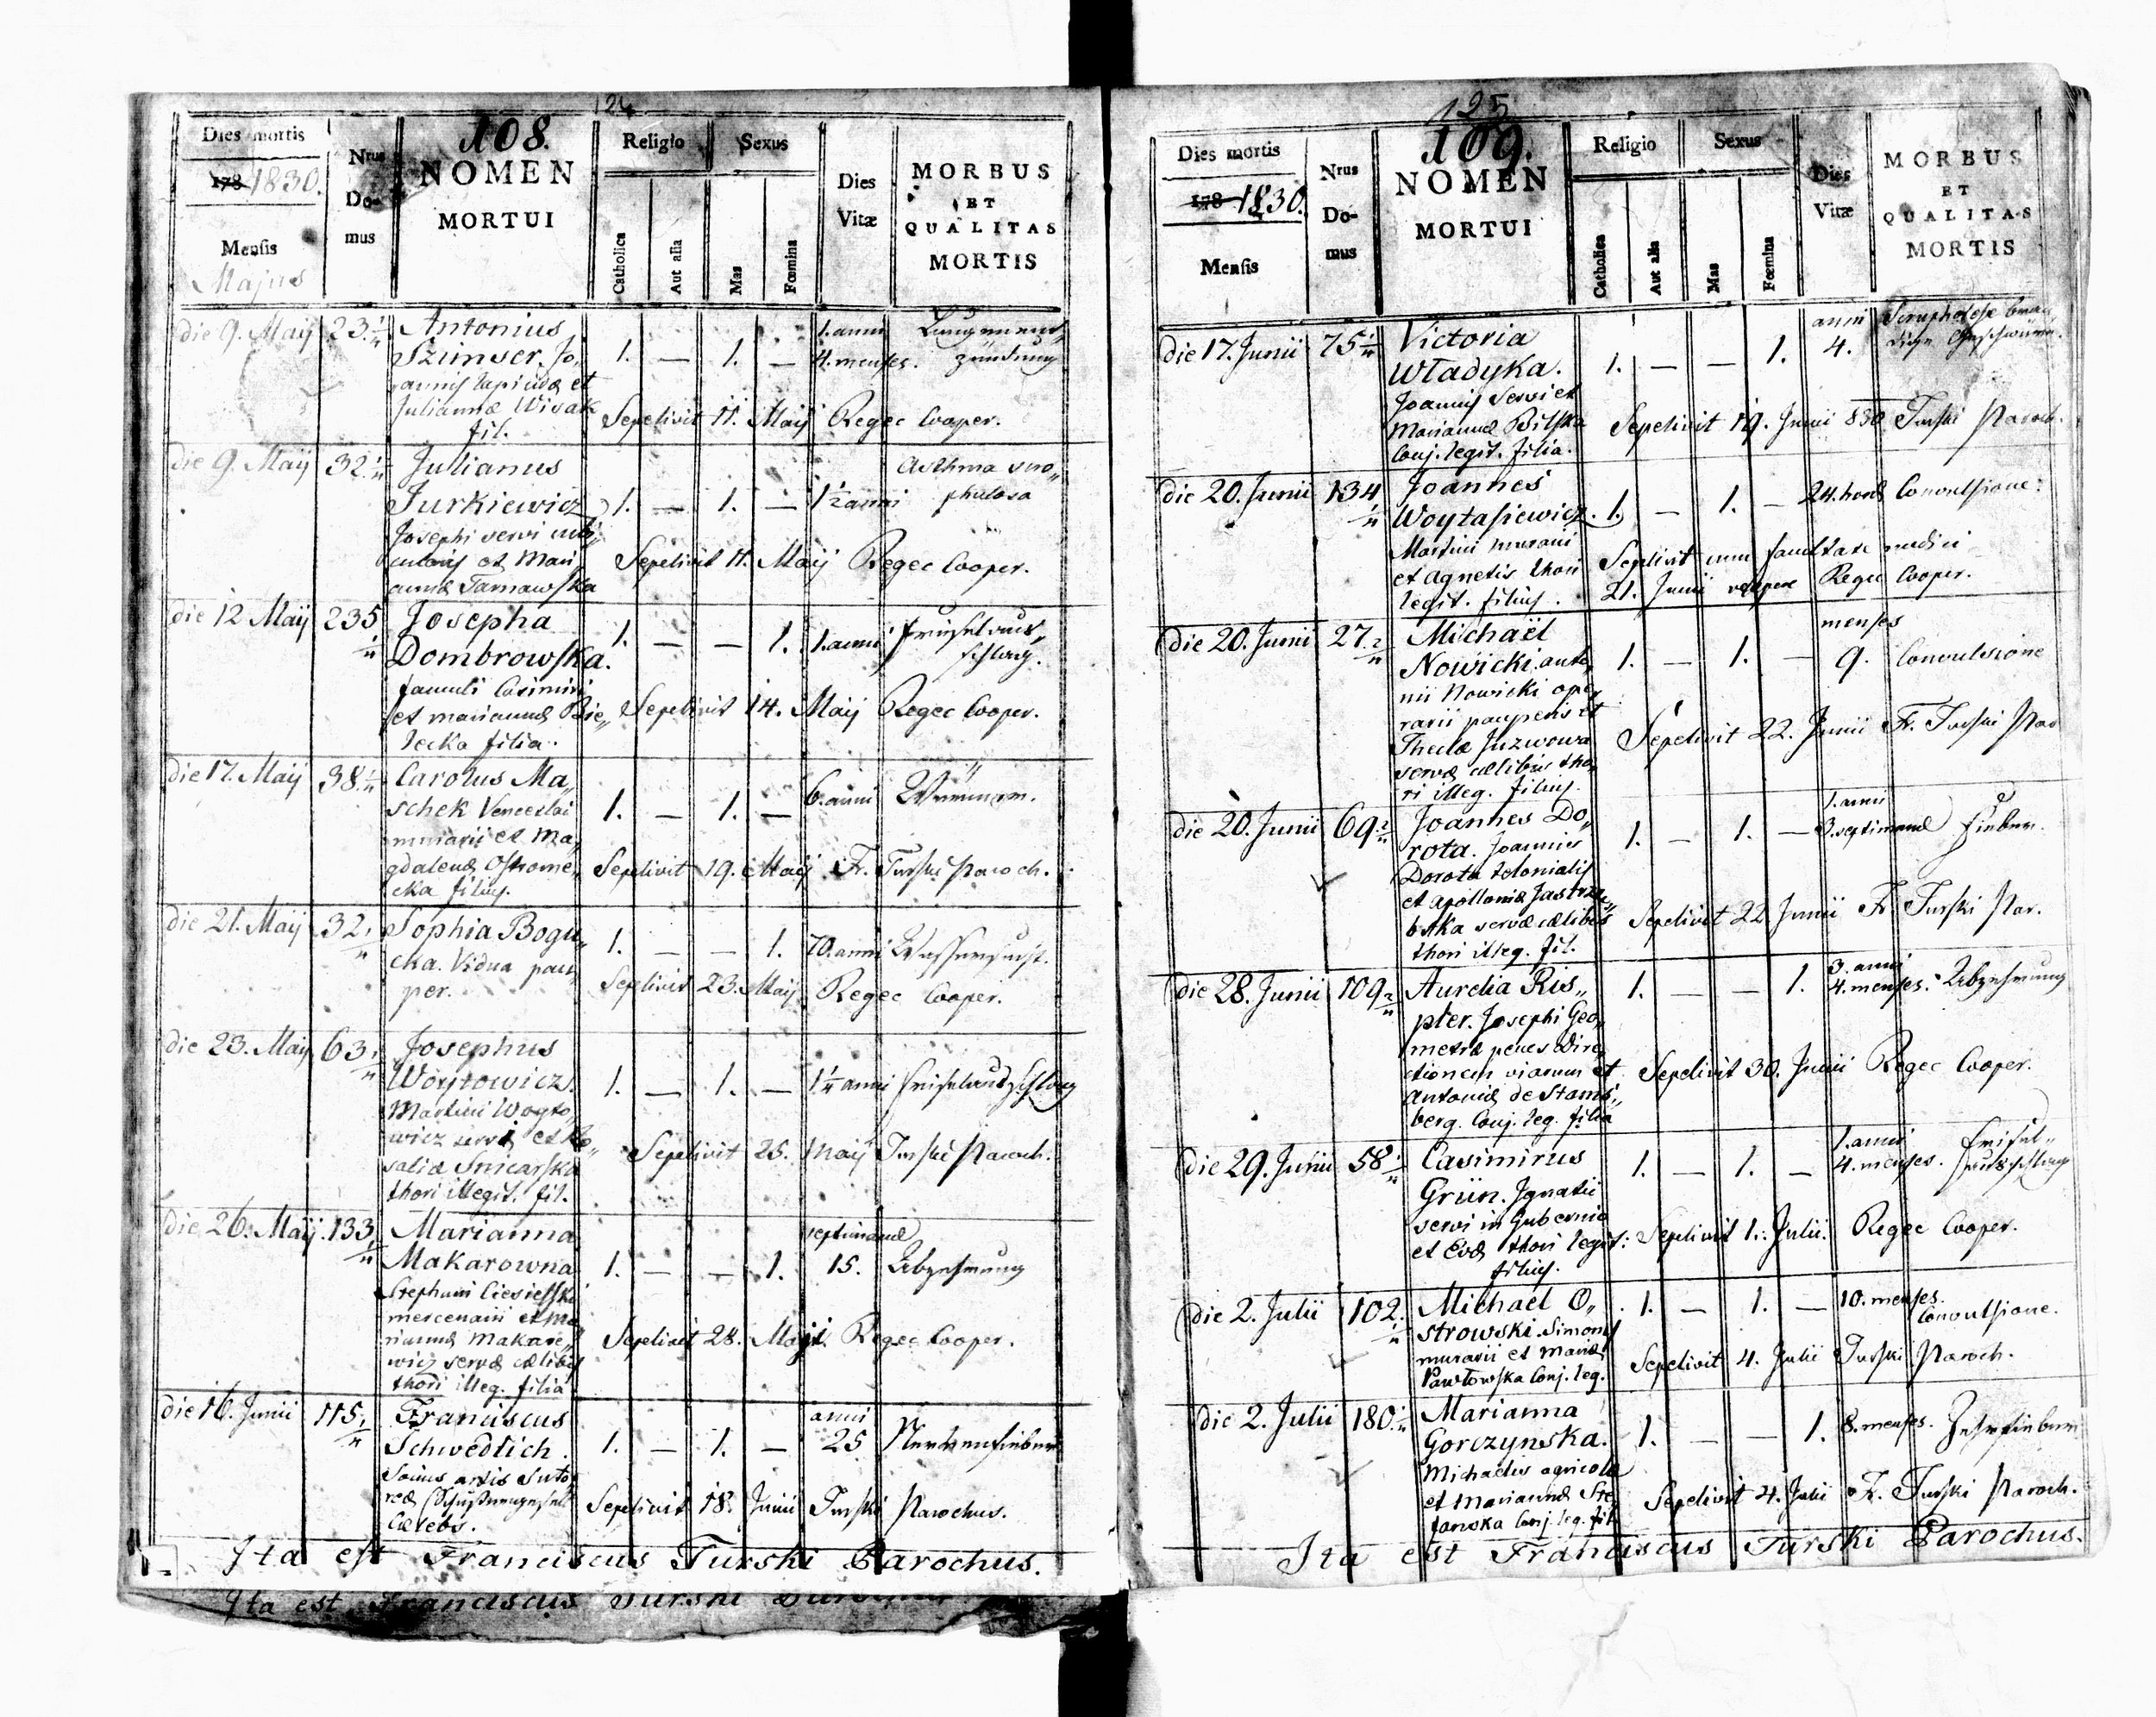 124
Dies mortis
178 1830.
Mensis
Majus
Nrus
Do-
mus
108.
NOMEN
MORTUI
Religio
Catholica
Aut alia
Sexus
Mas
Fœmina
Dies
Vitæ
MORBUS
ET
QUALITAS
MORTIS
die 9. Maij 23. Antonius 1. — 1. — 1. anni Lungenent„
Szimser. Jo„ 4. menses. zündung
annis lapicidæ et
Juliannæ Wisak Sepelivit 11. Maij Regec Cooper.
fil.
die 9. Maij 32. Julianus Asthma scro„
Jurkiewicz 1. — 1. — 1½ anni phulosa
Josephi servi cubi„
cularis et Mari„ Sepelivit 11. Maij Regec Cooper.
annæ Tarnawska
die 12 Maij 235 Josepha 1. — — 1. 1. anni Frieselaus„
Dombrowska. schlag.
famuli Casimiri
et mariannæ Bie„ Sepelivit 14. Maij Regec Cooper.
lecka filia.
die 17. Maij 38. Carolus Ma„ 6. anni Würmern.
schek Venceslai 1. — 1. —
murarii et Ma„
gdalenæ Ostrome„ Sepelivit 19. Maij Fr. Turski Paroch.
cka filius.
die 21. Maij 32. Sophia Bogu„ 1. — — 1. 70. anni Wassersucht.
cka. Vidua pau„ Sepelivit 23. Maij Regec Cooper.
per.
die 23. Maij 63. Josephus
Woytowicz. 1. — 1. — 1½ anni Frieselausschlag
Martini Woyto„
wicz servi et Ro„
saliæ Snicarska Sepelivit 25. Maij Turski Paroch.
thori illegit. fil.
die 26. Maij. 133. Marianna septimanæ
Makarowna 1. — — 1. 15. Abzehrung
Stephani Ciesielski
mercenarii et Ma„
riannæ Makare„ Sepelivit 28. Maji Regec Cooper.
wicz servæ cælibis
thori illeg. filia
die 16. Junii 115. Franciscus anni
Schwedlich. 1. — 1. — 25 Nervenfieber
Socius artis Suto„
reæ (Schustergesell Sepelivit 18. Junii Turski Parochus.
Cælebs.
Ita est Franciscus Turski Parochus.
Ita est Franciscus Turski
125
Dies mortis
178 1830.
Mensis
Nrus
Do-
mus
109.
NOMEN
MORTUI
Religio
Catholica
Aut alia
Sexus
Mas
Fœmina
Dies
Vitæ
MORBUS
ET
QUALITAS
MORTIS
die 17. Junii 75 Victoria anni
Władyka. 1. — — 1. 4. Geschwüre.
Joannis Servi et
Mariannæ Bilska Sepelivit 19. Junii 830 Turski Paroch.
Conj. legit. filia.
die 20. Junii 134 Joannes 24. horæ Convulsione.
Woytasiewicz. 1. — 1. —
Martini murarii Sepelivit cum facultate medici
et Agnetis thori 21. Junii vespere Regec Cooper.
legit. filius.
die 20. Junii 27. Michaël menses
Nowicki. anto„ 1. — 1. — 9. Convulsione
nii Nowicki ope„
rarii pauperis et Sepelivit 22. Junii Fr. Turski Par
Theclæ Juzwowa
servæ cælibis tho„
ri illeg. filius.
die 20. Junii 69. Joannes Do„ 1. anni
rota. Joannis 1. — 1. — 3. septimanæ Fieber.
Dorota Colonialis
et Apolloniæ Jastrzę„
bska servæ cælibis Sepelivit 22 Junii Fr. Turski Par.
thori illeg. fil.
die 28. Junii 109. Aurelia Ris„ 1. — — 1. 3. anni
pler. Josephi Geo„ 4. menses. Abzehrung
metræ penes Dire„
ctionem viarum et Sepelivit 30. Junii Regec Cooper.
Antoniæ de Stams„
berg. Conj. leg. filia
die 29. Junii 58. Casimirus 1. — 1. — 1. anni Friesel„
Grün. Ignatii 4. menses. ausschlag
servi in Gubernio
et Evæ thori legit: Sepelivit 1. Julii. Regec Cooper.
filius.
die 2. Julii 102. Michaël O„ 1. — 1. — 10. menses.
strowski. Simonis Convulsione.
murarii et Mariæ Sepelivit 4. Julii Turski Paroch.
Pawłowska Conj. leg.
die 2. Julii 180. Marianna 1. — — 1. 8. menses. Zehrfieber
Gorczynska.
Michaëlis agricolæ
et Mariannæ Ste„ Sepelivit 4. Julii Fr. Turski Paroch.
fanska Conj. leg. fil.
Ita est Franciscus Turski Parochus.